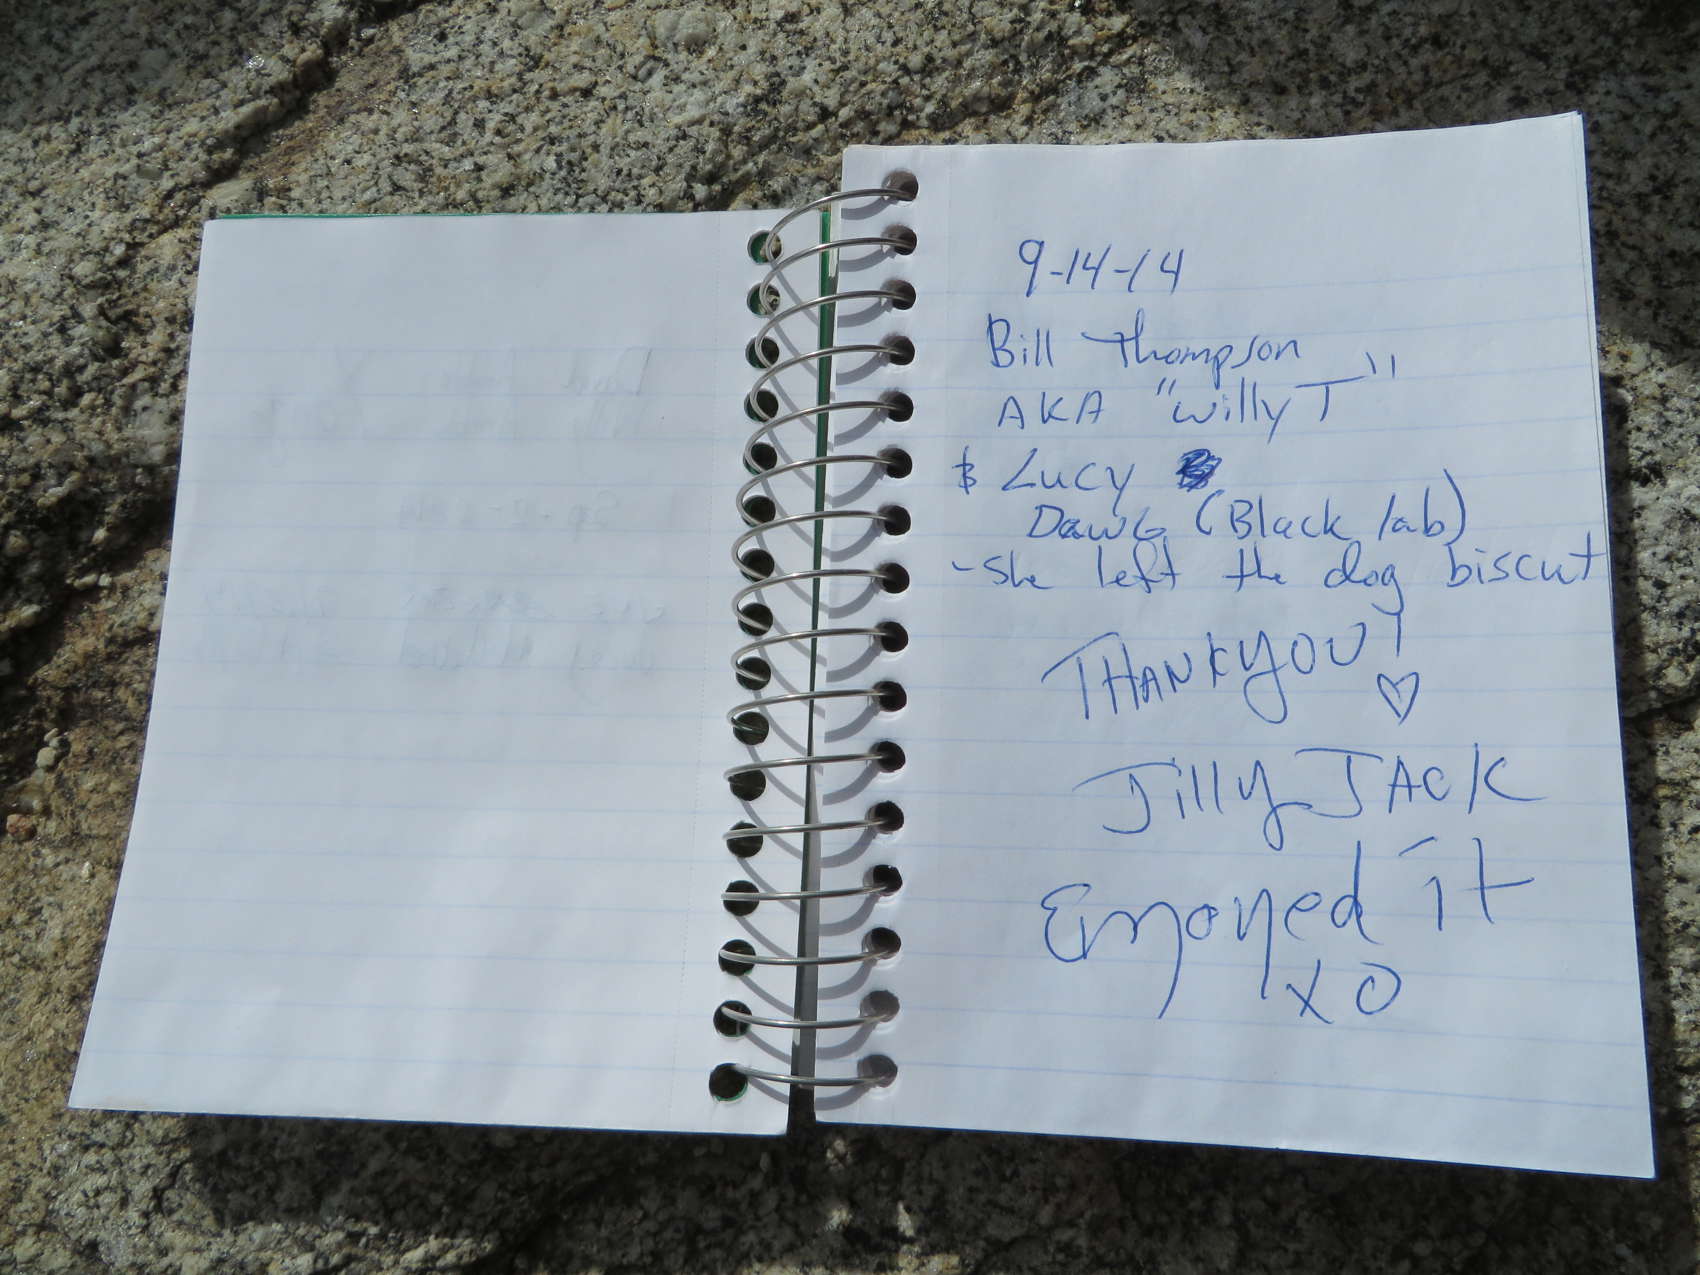 9-14-14
Bill Thompson
AKA "Willy T"
& Lucy
Dawg (Black lab)
- She left the dog biscut
THANKYOU!
♡
Jilly JACK
Enjoyed it
XO